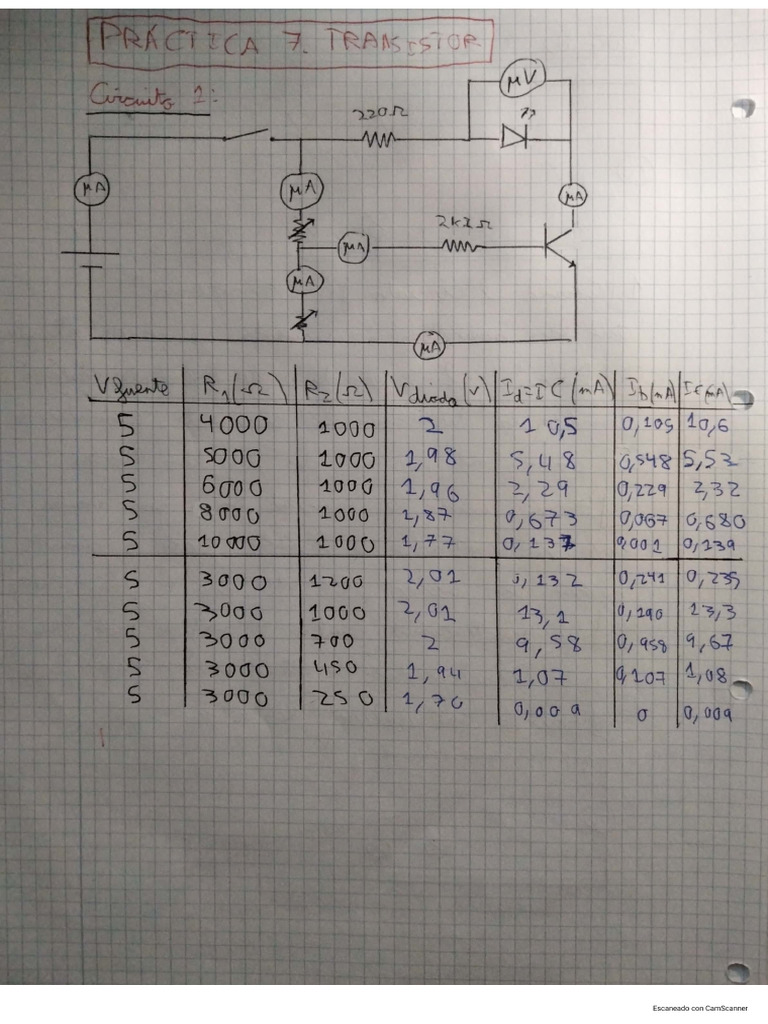 PRÁCTICA 7. TRANSISTOR
Circuito 1:
μV
220Ω
μA
μA
μA
μA
2k2Ω
μA
μA
Vfuente R1(Ω) R2(Ω) Vdiodo(V) Id=IC(mA) Ib(mA) IE(mA)
5 4000 1000 2 10,5 0,105 10,6
5 5000 1000 1,98 5,48 0,548 5,53
5 6000 1000 1,96 2,29 0,229 2,32
5 8000 1000 1,87 0,673 0,067 0,680
5 10000 1000 1,77 0,137 0,001 0,139
5 3000 1200 2,01 0,132 0,241 0,235
5 3000 1000 2,01 13,1 0,190 13,3
5 3000 700 2 9,58 0,958 9,67
5 3000 450 1,94 1,07 0,107 1,08
5 3000 250 1,70 0,009 0 0,009
Escaneado con CamScanner